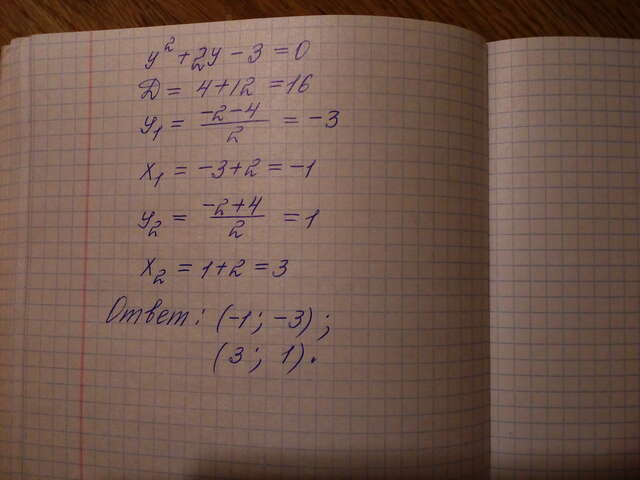 y² + 2y - 3 = 0
Д = 4 + 12 = 16
y₁ = (-2-4)/2 = -3
x₁ = -3 + 2 = -1
y₂ = (-2+4)/2 = 1
x₂ = 1 + 2 = 3
Ответ: (-1; -3);
(3; 1).